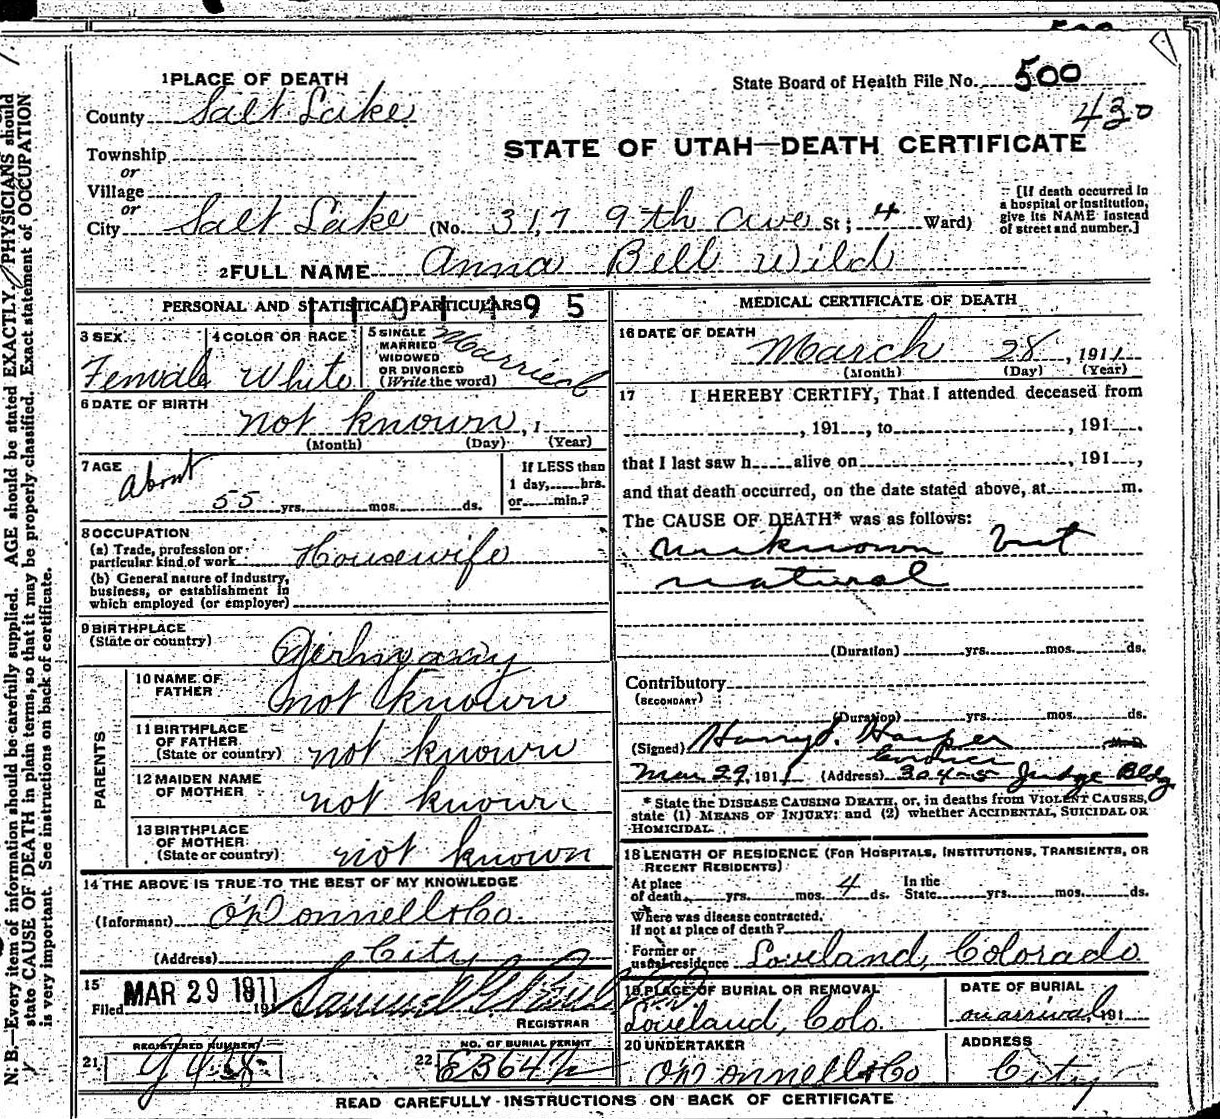 1 PLACE OF DEATH
State Board of Health File No. 500
430
County Salt Lake
STATE OF UTAH—DEATH CERTIFICATE
Township
or
Village
or
City Salt Lake (No. 317 9th Ave St; 4 Ward)
[If death occurred in
a hospital or institution,
give its NAME instead
of street and number.]
2 FULL NAME Anna Bell Wild
PERSONAL AND STATISTICAL PARTICULARS
3 SEX
Female
4 COLOR OR RACE
White
5 SINGLE
MARRIED
WIDOWED
OR DIVORCED
(Write the word)
Married
6 DATE OF BIRTH
not known, 1
(Month) (Day) (Year)
7 AGE
About
55 yrs. mos. ds.
If LESS than
1 day, hrs.
or min.?
8 OCCUPATION
(a) Trade, profession or
particular kind of work Housewife
(b) General nature of industry,
business, or establishment in
which employed (or employer)
9 BIRTHPLACE
(State or country) Germany
PARENTS
10 NAME OF
FATHER not known
11 BIRTHPLACE
OF FATHER
(State or country) not known
12 MAIDEN NAME
OF MOTHER not known
13 BIRTHPLACE
OF MOTHER
(State or country) not known
14 THE ABOVE IS TRUE TO THE BEST OF MY KNOWLEDGE
(Informant) O'Donnell & Co.
(Address) City
15
Filed MAR 29 1911 191 Samuel G.
REGISTRAR
21. REGISTERED NUMBER
22 NO. OF BURIAL PERMIT
MEDICAL CERTIFICATE OF DEATH
16 DATE OF DEATH
March 28, 1911
(Month) (Day) (Year)
17 I HEREBY CERTIFY, That I attended deceased from
, 191 , to , 191 .
that I last saw h alive on , 191 ,
and that death occurred, on the date stated above, at m.
The CAUSE OF DEATH* was as follows:
unknown but
natural
(Duration) yrs. mos. ds.
Contributory
(SECONDARY)
(Duration) yrs. mos. ds.
(Signed) Harry S. Harper M.D.
Coroner
Mar 29, 1911 (Address) 304-5 Judge Bldg
* State the DISEASE CAUSING DEATH, or, in deaths from VIOLENT CAUSES,
state (1) MEANS OF INJURY; and (2) whether ACCIDENTAL, SUICIDAL OR
HOMICIDAL.
18 LENGTH OF RESIDENCE (FOR HOSPITALS, INSTITUTIONS, TRANSIENTS, OR
RECENT RESIDENTS)
At place
of death yrs. mos. 4 ds. In the
State yrs. mos. ds.
Where was disease contracted,
If not at place of death?
Former or
usual residence Loveland, Colorado
19 PLACE OF BURIAL OR REMOVAL
Loveland, Colo.
DATE OF BURIAL
on arrival, 191
20 UNDERTAKER
O'Donnell & Co
ADDRESS
City
READ CAREFULLY INSTRUCTIONS ON BACK OF CERTIFICATE
N. B.—Every item of information should be carefully supplied. AGE should be stated EXACTLY. PHYSICIANS should
state CAUSE OF DEATH in plain terms, so that it may be properly classified. Exact statement of OCCUPATION
is very important. See instructions on back of certificate.